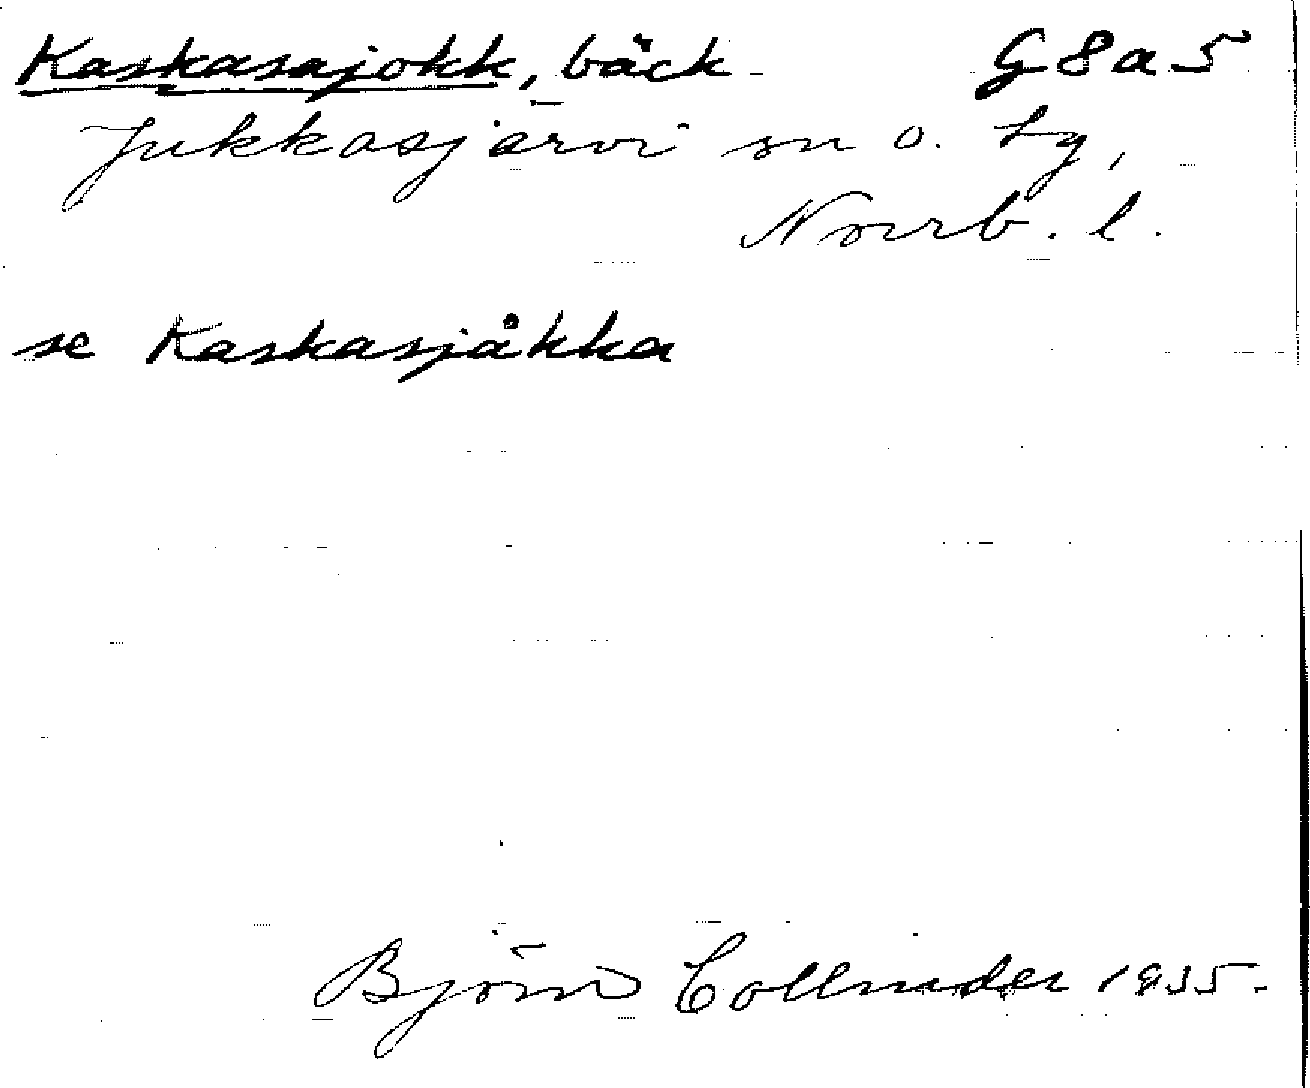 Kaskasajokk, bäck G8a5
Jukkasjärvi sn o. tg,
Norrb. l.
se Kaskasjåkka
Björn Collinder 1935.